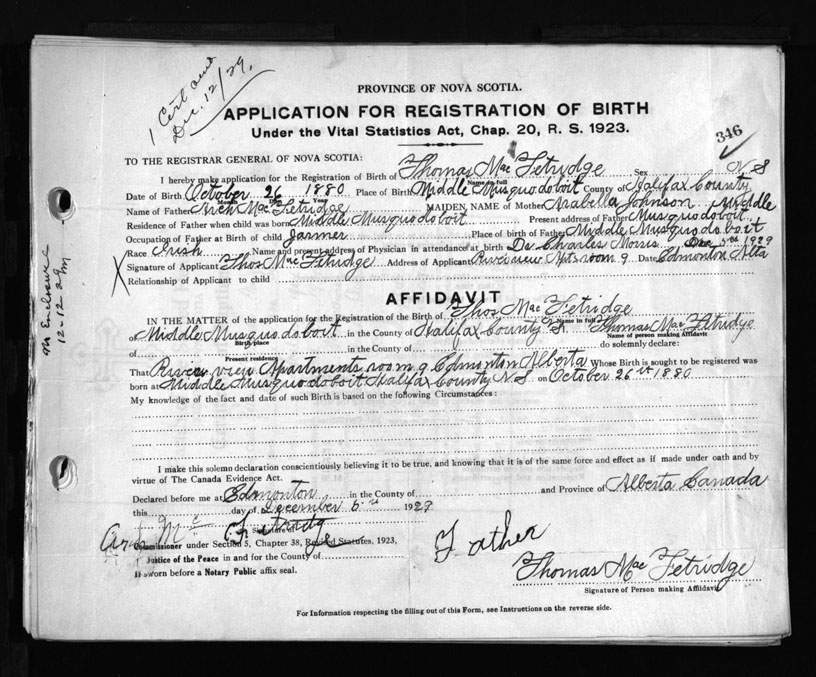 1 Cert
Dec. 12/29.
PROVINCE OF NOVA SCOTIA.
APPLICATION FOR REGISTRATION OF BIRTH
Under the Vital Statistics Act, Chap. 20, R. S. 1923.
346
TO THE REGISTRAR GENERAL OF NOVA SCOTIA:
I hereby make application for the Registration of Birth of Thomas Mac Fetridge Sex N S
Name in full
Date of Birth October 26 1880 Place of Birth Middle Musquodoboit County of Halifax County
Month Day Year
Name of Father Arch Mac Fetridge MAIDEN NAME of Mother Arabella Johnson Middle
Residence of Father when child was born Middle Musquodoboit Present address of Father Musquodoboit
Occupation of Father at Birth of child Farmer Place of Birth of Father Middle Musquodoboit
Race Irish Name and present address of Physician in attendance at birth Dr Charles Morris 5th 1929
Signature of Applicant Thos Mac Fetridge Address of Applicant Riverview Apts room 9 Date Edmonton Alta
Relationship of Applicant to child
AFFIDAVIT
IN THE MATTER of the application for the Registration of the Birth of Thos Mac Fetridge
Name in full
of Middle Musquodoboit in the County of Halifax County I, Thomas Mac Fetridge
Birth place
Name of person making Affidavit
of in the County of do solemnly declare:
Present residence
That River view Apartments room 9 Edmonton Alberta Whose Birth is sought to be registered was
born at Middle Musquodoboit Halifax County N S on October 26th 1880
My knowledge of the fact and date of such Birth is based on the following Circumstances:
I make this solemn declaration conscientiously believing it to be true, and knowing that it is of the same force and effect as if made under oath and by
virtue of The Canada Evidence Act.
Declared before me at Edmonton in the County of and Province of Alberta Canada
this day of December 5 1929
Signature of
Commissioner under Section 5, Chapter 38, Revised Statutes, 1923,
Father
Justice of the Peace in and for the County of
If sworn before a Notary Public affix seal.
Thomas Mac Fetridge
Signature of Person making Affidavit
For Information respecting the filling out of this Form, see Instructions on the reverse side.